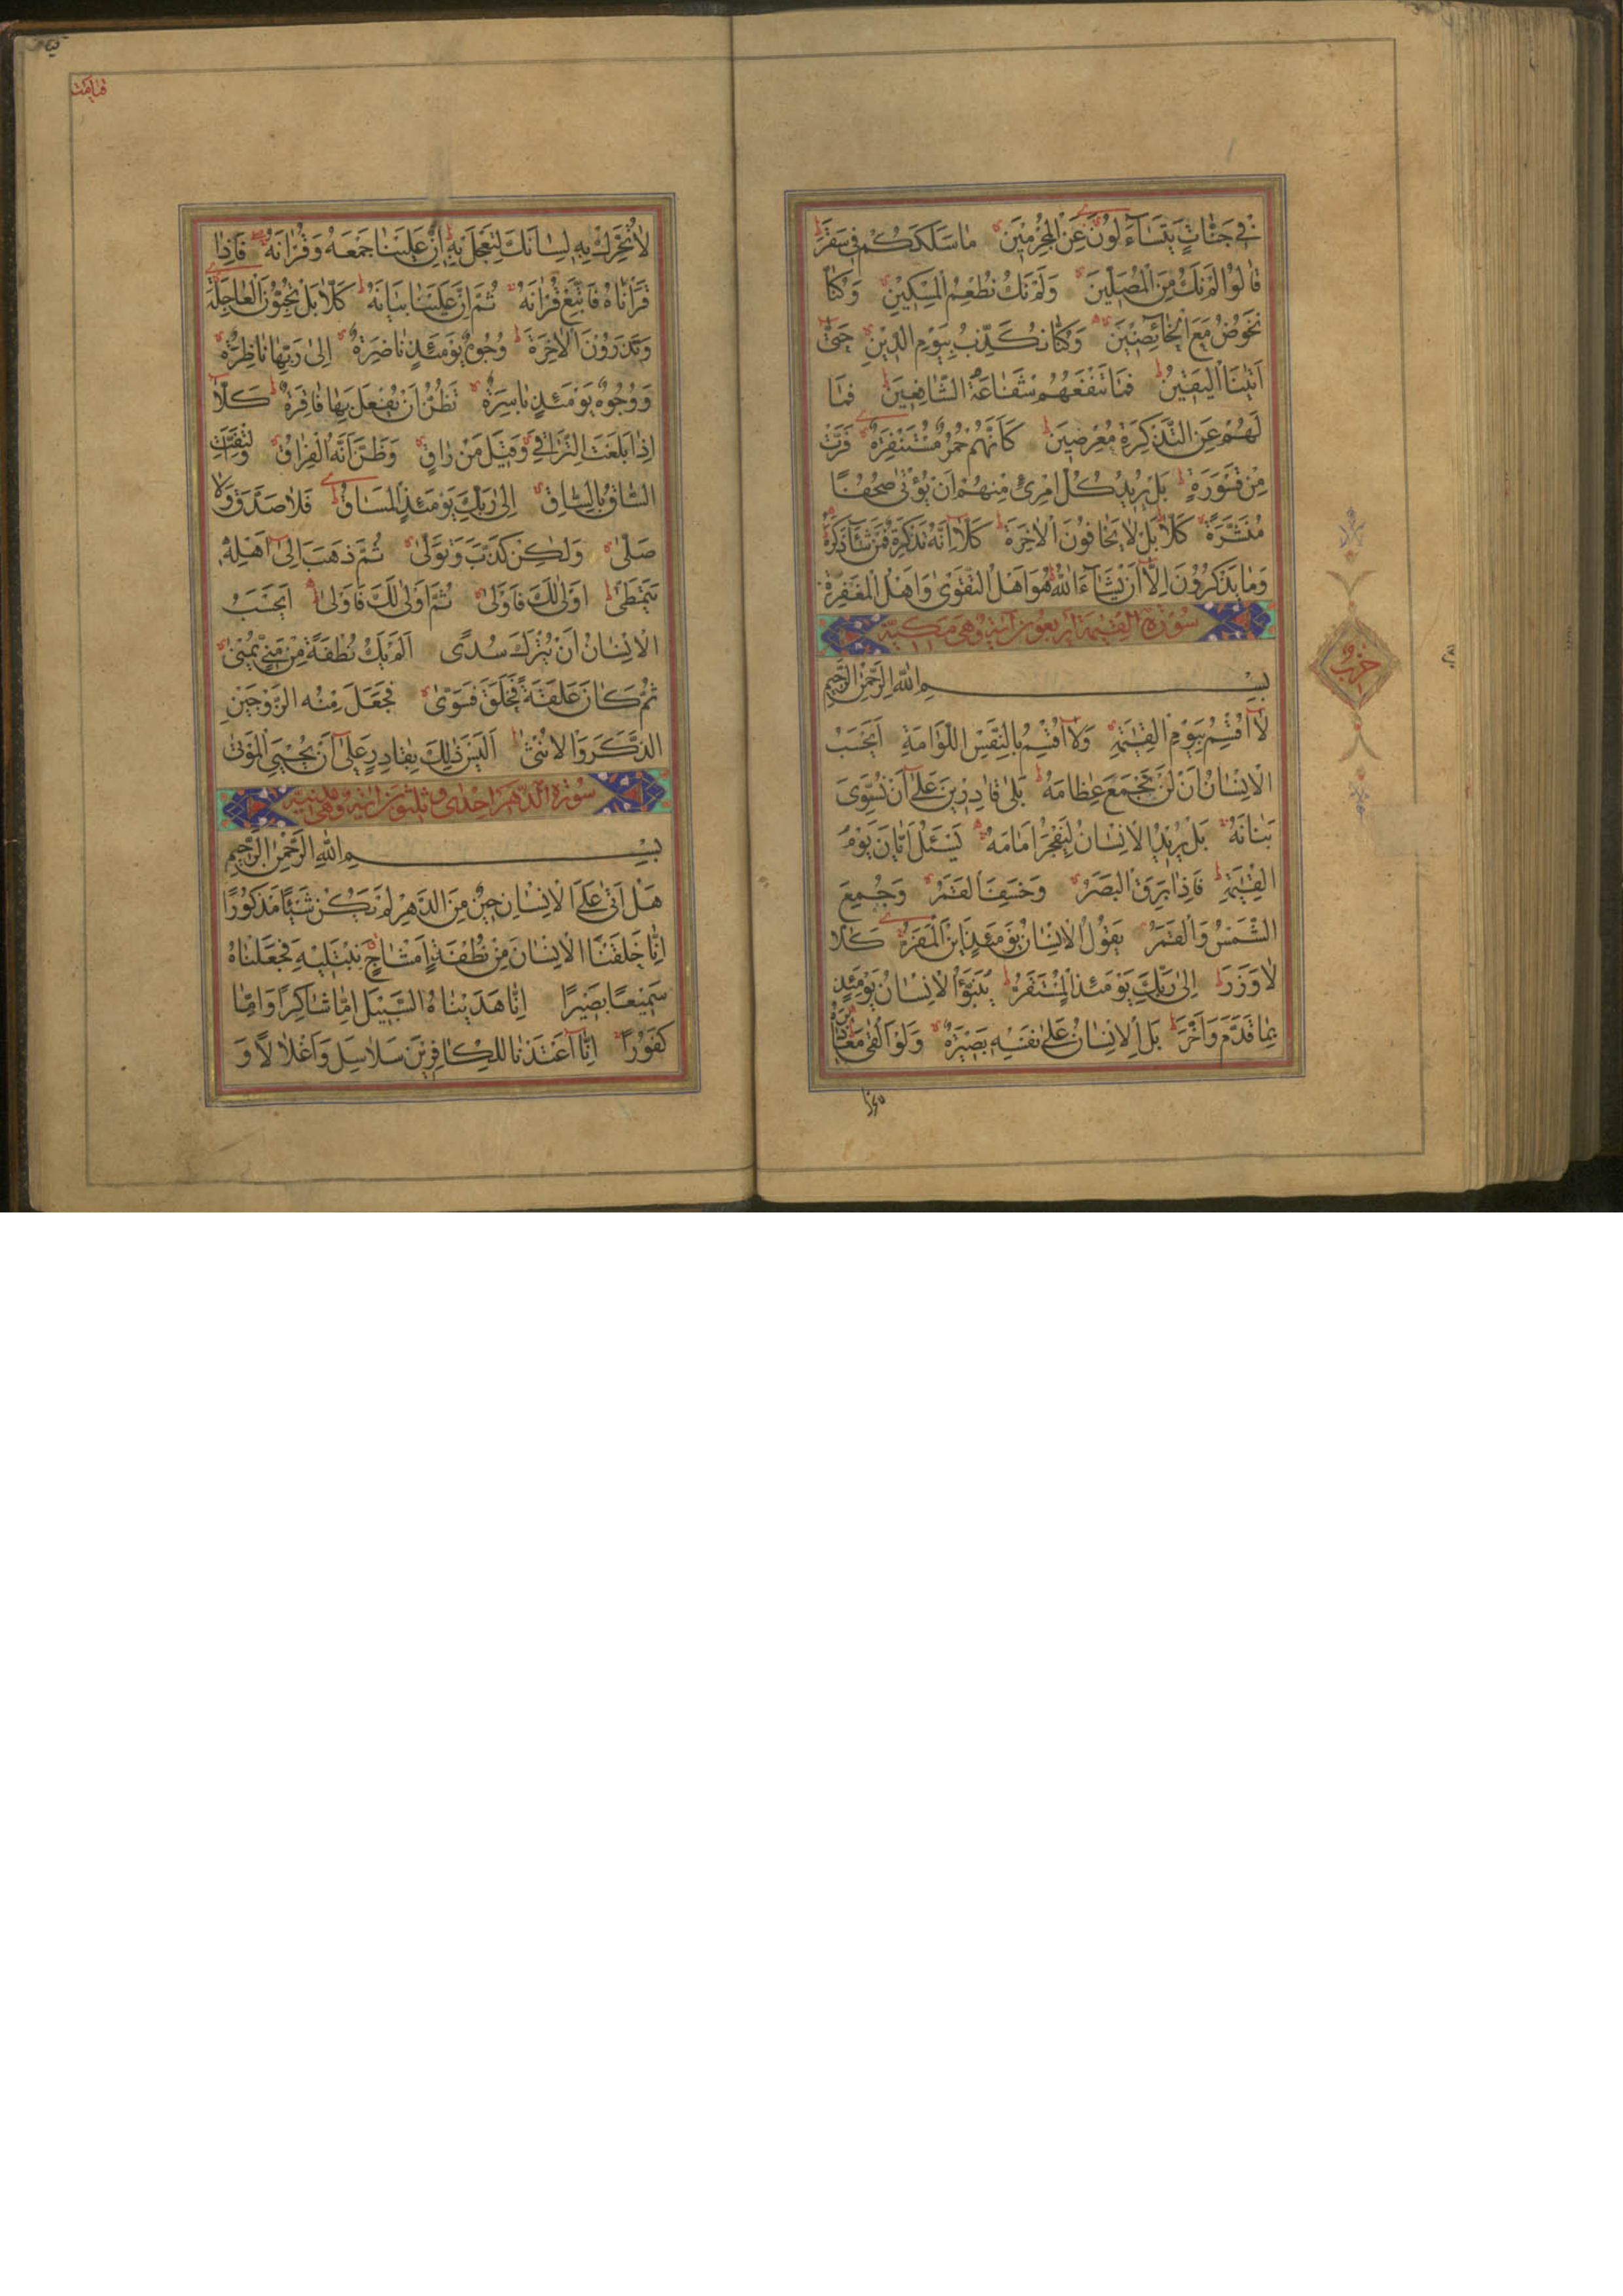 فِي جَنَّاتٍ يَتَسَاءَلُونَ عَنِ الْمُجْرِمِينَ مَا سَلَكَكُمْ فِي سَقَرَ
قَالُوا لَمْ نَكُ مِنَ الْمُصَلِّينَ وَلَمْ نَكُ نُطْعِمُ الْمِسْكِينَ وَكُنَّا
نَخُوضُ مَعَ الْخَائِضِينَ وَكُنَّا نُكَذِّبُ بِيَوْمِ الدِّينِ حَتَّى
أَتَيْنَا الْيَقِينُ فَمَا تَنْفَعُهُمْ شَفَاعَةُ الشَّافِعِينَ فَمَا
لَهُمْ عَنِ التَّذْكِرَةِ مُعْرِضِينَ كَأَنَّهُمْ حُمُرٌ مُسْتَنْفِرَةٌ فَرَّتْ
مِنْ قَسْوَرَةٍ بَلْ يُرِيدُ كُلُّ امْرِئٍ مِنْهُمْ أَنْ يُؤْتَى صُحُفًا
مُنَشَّرَةً كَلَّا بَلْ لَا يَخَافُونَ الْآخِرَةَ كَلَّا إِنَّهُ تَذْكِرَةٌ فَمَنْ شَاءَ ذَكَرَهُ
وَمَا يَذْكُرُونَ إِلَّا أَنْ يَشَاءَ اللَّهُ هُوَ أَهْلُ التَّقْوَى وَأَهْلُ الْمَغْفِرَةِ
سُورَةُ الْقِيٰمَةِ أَرْبَعُونَ آيَةً وَهِيَ مَكِّيَّةٌ
بِسْمِ اللَّهِ الرَّحْمٰنِ الرَّحِيمِ
لَا أُقْسِمُ بِيَوْمِ الْقِيٰمَةِ وَلَا أُقْسِمُ بِالنَّفْسِ اللَّوَّامَةِ أَيَحْسَبُ
الْإِنْسَانُ أَنْ لَنْ نَجْمَعَ عِظَامَهُ بَلَى قَادِرِينَ عَلَى أَنْ نُسَوِّيَ
بَنَانَهُ بَلْ يُرِيدُ الْإِنْسَانُ لِيَفْجُرَ أَمَامَهُ يَسْئَلُ أَيَّانَ يَوْمُ
الْقِيٰمَةِ فَإِذَا بَرِقَ الْبَصَرُ وَخَسَفَ الْقَمَرُ وَجُمِعَ
الشَّمْسُ وَالْقَمَرُ يَقُولُ الْإِنْسَانُ يَوْمَئِذٍ أَيْنَ الْمَفَرُّ كَلَّا
لَا وَزَرَ إِلَى رَبِّكَ يَوْمَئِذٍ الْمُسْتَقَرُّ يُنَبَّؤُا الْإِنْسَانُ يَوْمَئِذٍ
بِمَا قَدَّمَ وَأَخَّرَ بَلِ الْإِنْسَانُ عَلَى نَفْسِهِ بَصِيرَةٌ وَلَوْ أَلْقَى مَعَاذِيرَهُ
حزب
قيامت
لَا تُحَرِّكْ بِهِ لِسَانَكَ لِتَعْجَلَ بِهِ إِنَّ عَلَيْنَا جَمْعَهُ وَقُرْآنَهُ فَإِذَا
قَرَأْنَاهُ فَاتَّبِعْ قُرْآنَهُ ثُمَّ إِنَّ عَلَيْنَا بَيَانَهُ كَلَّا بَلْ تُحِبُّونَ الْعَاجِلَةَ
وَتَذَرُونَ الْآخِرَةَ وُجُوهٌ يَوْمَئِذٍ نَاضِرَةٌ إِلَى رَبِّهَا نَاظِرَةٌ
وَوُجُوهٌ يَوْمَئِذٍ بَاسِرَةٌ تَظُنُّ أَنْ يُفْعَلَ بِهَا فَاقِرَةٌ كَلَّا
إِذَا بَلَغَتِ التَّرَاقِيَ وَقِيلَ مَنْ رَاقٍ وَظَنَّ أَنَّهُ الْفِرَاقُ وَالْتَفَّتِ
السَّاقُ بِالسَّاقِ إِلَى رَبِّكَ يَوْمَئِذٍ الْمَسَاقُ فَلَا صَدَّقَ وَلَا
صَلَّى وَلٰكِنْ كَذَّبَ وَتَوَلَّى ثُمَّ ذَهَبَ إِلَى أَهْلِهِ
يَتَمَطَّى أَوْلَى لَكَ فَأَوْلَى ثُمَّ أَوْلَى لَكَ فَأَوْلَى أَيَحْسَبُ
الْإِنْسَانُ أَنْ يُتْرَكَ سُدًى أَلَمْ يَكُ نُطْفَةً مِنْ مَنِيٍّ يُمْنَى
ثُمَّ كَانَ عَلَقَةً فَخَلَقَ فَسَوَّى فَجَعَلَ مِنْهُ الزَّوْجَيْنِ
الذَّكَرَ وَالْأُنْثَى أَلَيْسَ ذٰلِكَ بِقَادِرٍ عَلَى أَنْ يُحْيِيَ الْمَوْتَى
سُورَةُ الدَّهْرِ إِحْدَى وَثَلٰثُونَ آيَةً وَهِيَ مَدَنِيَّةٌ
بِسْمِ اللَّهِ الرَّحْمٰنِ الرَّحِيمِ
هَلْ أَتَى عَلَى الْإِنْسَانِ حِينٌ مِنَ الدَّهْرِ لَمْ يَكُنْ شَيْئًا مَذْكُورًا
إِنَّا خَلَقْنَا الْإِنْسَانَ مِنْ نُطْفَةٍ أَمْشَاجٍ نَبْتَلِيهِ فَجَعَلْنَاهُ
سَمِيعًا بَصِيرًا إِنَّا هَدَيْنَاهُ السَّبِيلَ إِمَّا شَاكِرًا وَإِمَّا
كَفُورًا إِنَّا أَعْتَدْنَا لِلْكَافِرِينَ سَلَاسِلَ وَأَغْلَالًا وَ